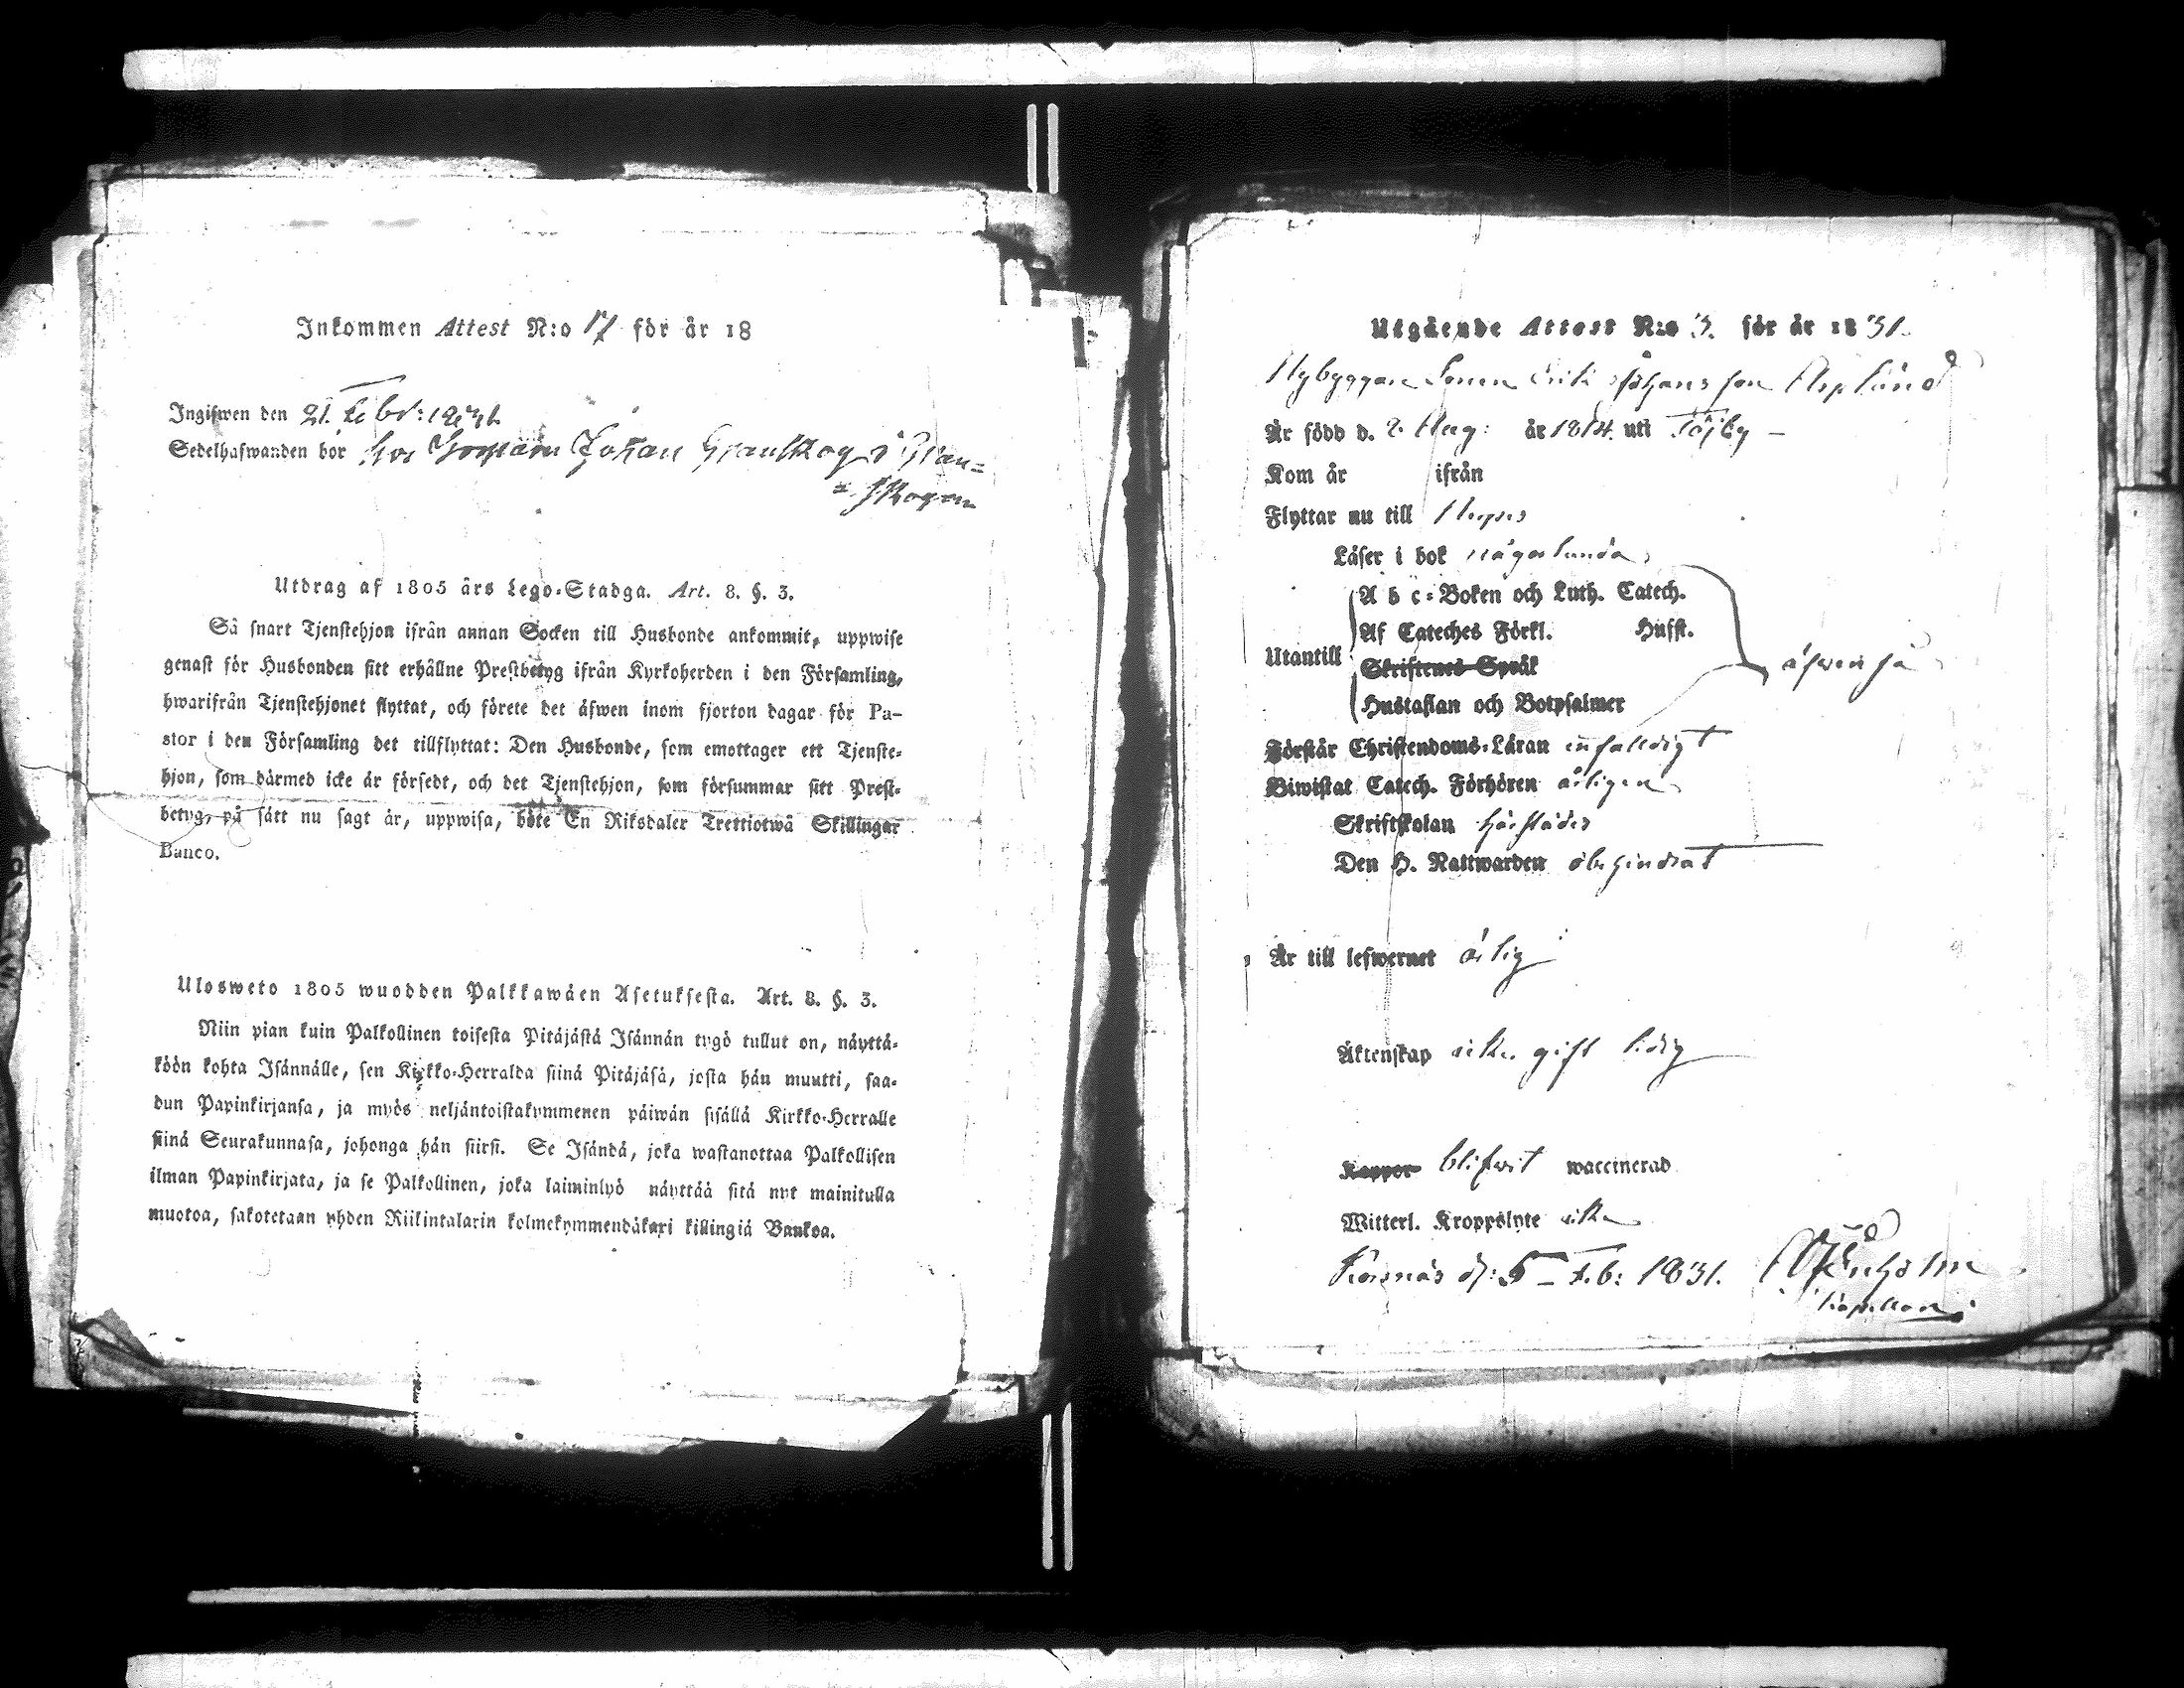 Inkommen Attest N:o 17 för år 18
Ingifwen den 21. Febr: 1831.
Sedelhafwanden bor hos Johan Granskog i Gran=
=skogen
Utdrag af 1805 års Lego-Stadga. Art. 8. §. 3.
Så snart Tjenstehjon ifrån annan Socken till Husbonde ankommit, uppwise
genast för Husbonden sitt erhållne Prestbetyg ifrån Kyrkoherden i den Församling,
hwarifrån Tjenstehjonet flyttat, och förete det äfwen inom fjorton dagar för Pa-
stor i den Församling det tillflyttat: Den Husbonde, som emottager ett Tjenste-
hjon, som därmed icke är försedt, och det Tjenstehjon, som försummar sitt Prest-
betyg, på sätt nu sagt är, uppwisa, böte En Riksdaler Trettiotwå Skillingar
Banco.
Ulosweto 1805 wuodden Palkkawäen Asetuksesta. Art. 8. §. 3.
Niin pian kuin Palkollinen toisesta Pitäjästä Isännän tygö tullut on, näyttä-
köön kohta Isännälle, sen Kirkko-Herralda siinä Pitäjäsä, josta hän muutti, saa-
dun Papinkirjansa, ja myös neljäntoistakymmenen päiwän sisällä Kirkko-Herralle
siinä Seurakunnasa, johonga hän siirsi. Se Isändä, joka wastanottaa Palkollisen
ilman Papinkirjata, ja se Palkollinen, joka laiminlyö näyttää sitä nyt mainitulla
muotoa, sakotetaan yhden Riikintalarin kolmekymmendäkaxi killingiä Bankoa.
Utgående Attest N:o 3. för år 1831.
Nybyggare Sonen Erik Johansson Asplund
Är född d. 2 Aug: år 1814. uti Töjby –
Kom år ifrån
Flyttar nu till
Läser i bok någorlunda
A b c-Boken och Luth. Catech.
Af Cateches Förkl. Husst.
Utantill Skriftenes Språk äfwen så
Hustaflan och Botpsalmer
Förstår Christendoms-Läran enfaldigt
Biwistat Catech. Förhören årligen
Skriftskolan härstädes
Den H. Nattwarden obehindrat
Är till lefwernet ärlig
Äktenskap icke gift ledig
Koppor blifwit waccinerad
Witterl. Kroppslyte icke
Korsnäs d: 5 – Feb: 1831.
Kapellan